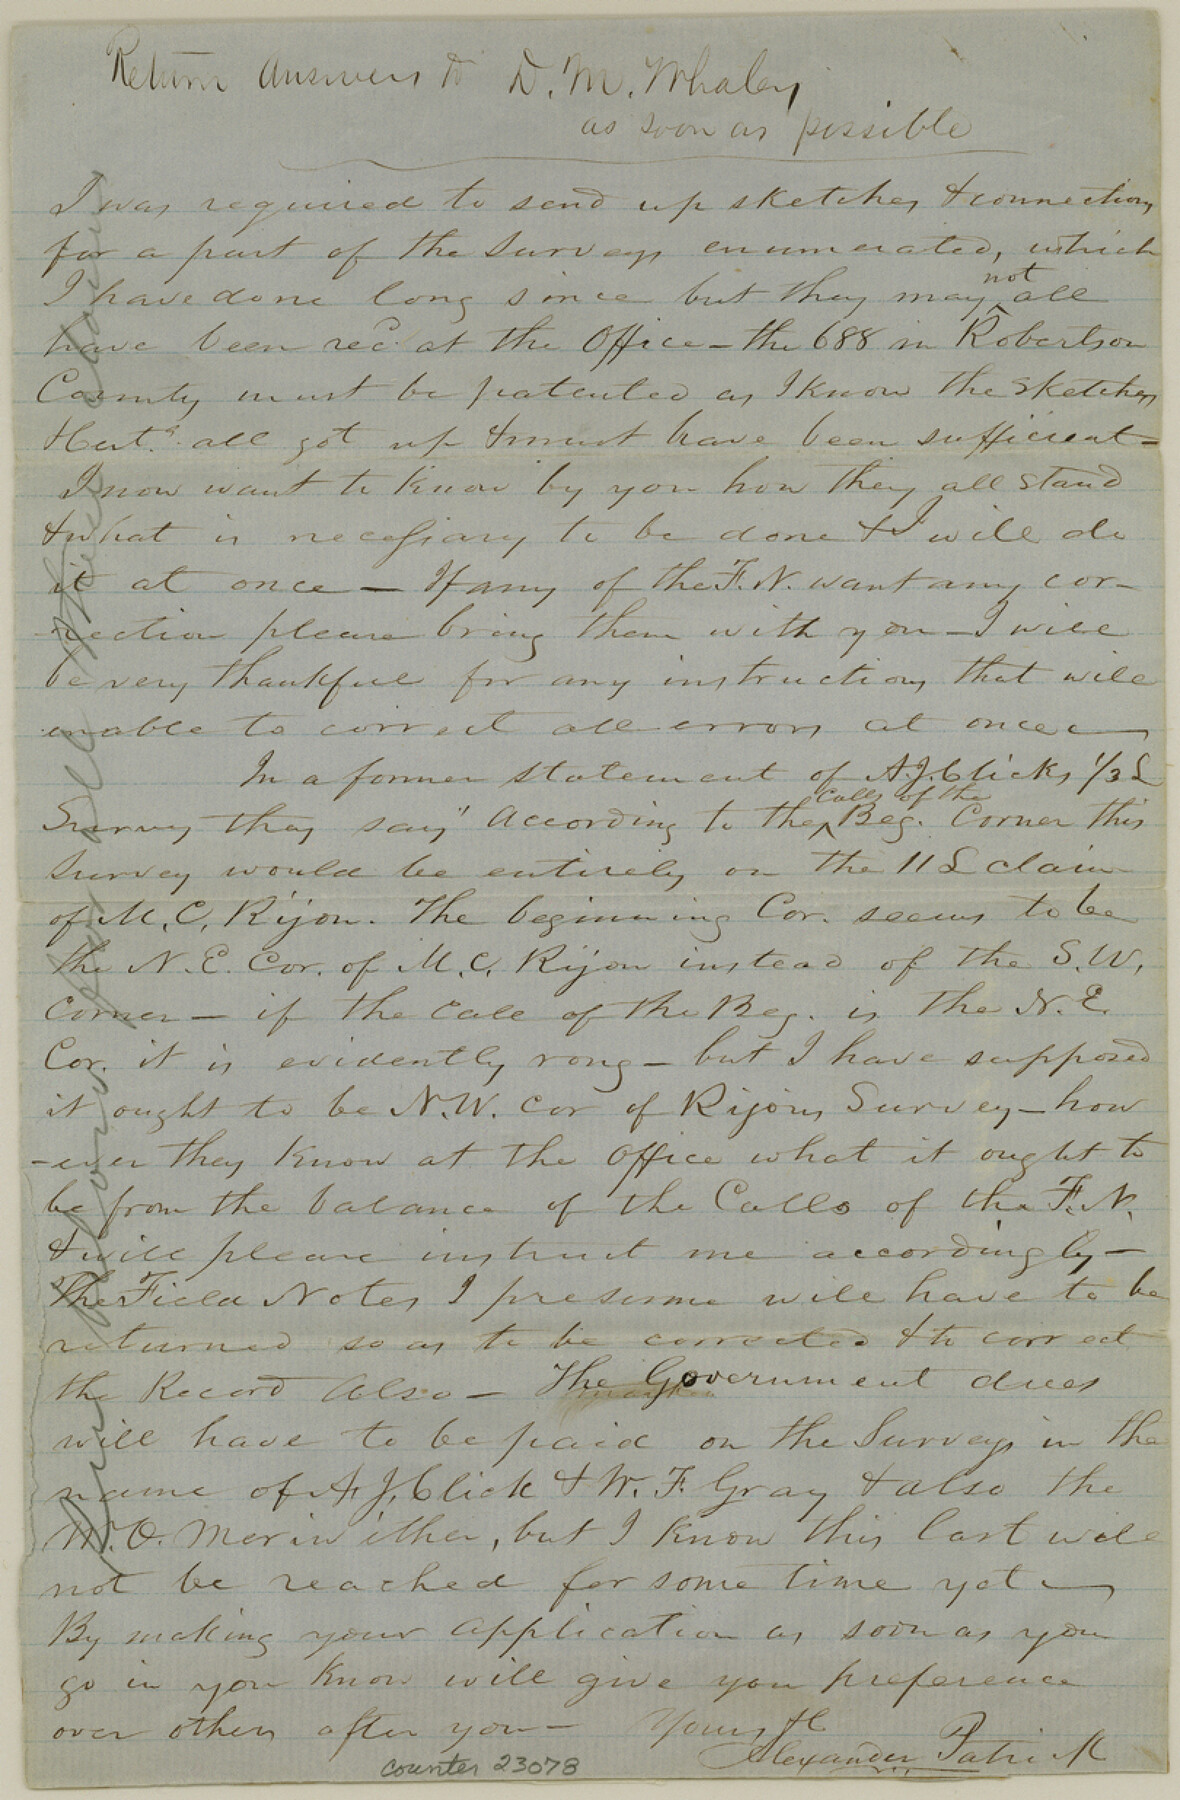 Return Answers to D. M. Whaley
as soon as possible
I was required to send up sketches & connections
for a part of the Surveys enumerated, which
I have done long since but they may not all
have been recd at the Office - the 688 in Robertson
County must be patented as I know the sketches
& Certs. all got up & must have been sufficient -
I now want to know by you how they all stand
& what is necessary to be done & I will do
it at once - If any of the F. N. want any cor-
-rection please bring them with you - I will
be very thankful for any instructions that will
enable to correct all errors at once -
In a former statement of A. J. Clicks 1/3 L
Survey they say "According to the calls of the Beg. Corner this
survey would be entirely on the 11 L claim
of M. C. Rijon. The beginning Cor. seems to be
the N. E. Cor. of M. C. Rijon instead of the S. W.
Corner - if the call of the Beg. is the N. E.
Cor. it is evidently rong - but I have supposed
it ought to be N. W. cor of Rijons Survey - how
-ever they know at the Office what it ought to
be from the balance of the Calls of the F. N.
& will please instruct me accordingly -
The Field Notes I presume will have to be
returned so as to be corrected & to correct
the Record also - The Government dues
will have to be paid on the Surveys in the
name of A. J. Click & W. F. Gray & also the
W. O. Meriwither, but I know this last will
not be reached for some time yet -
By making your application as soon as you
go in you know will give you preference
over others after you - Yours &c
Alexander Patrick
counter 23078